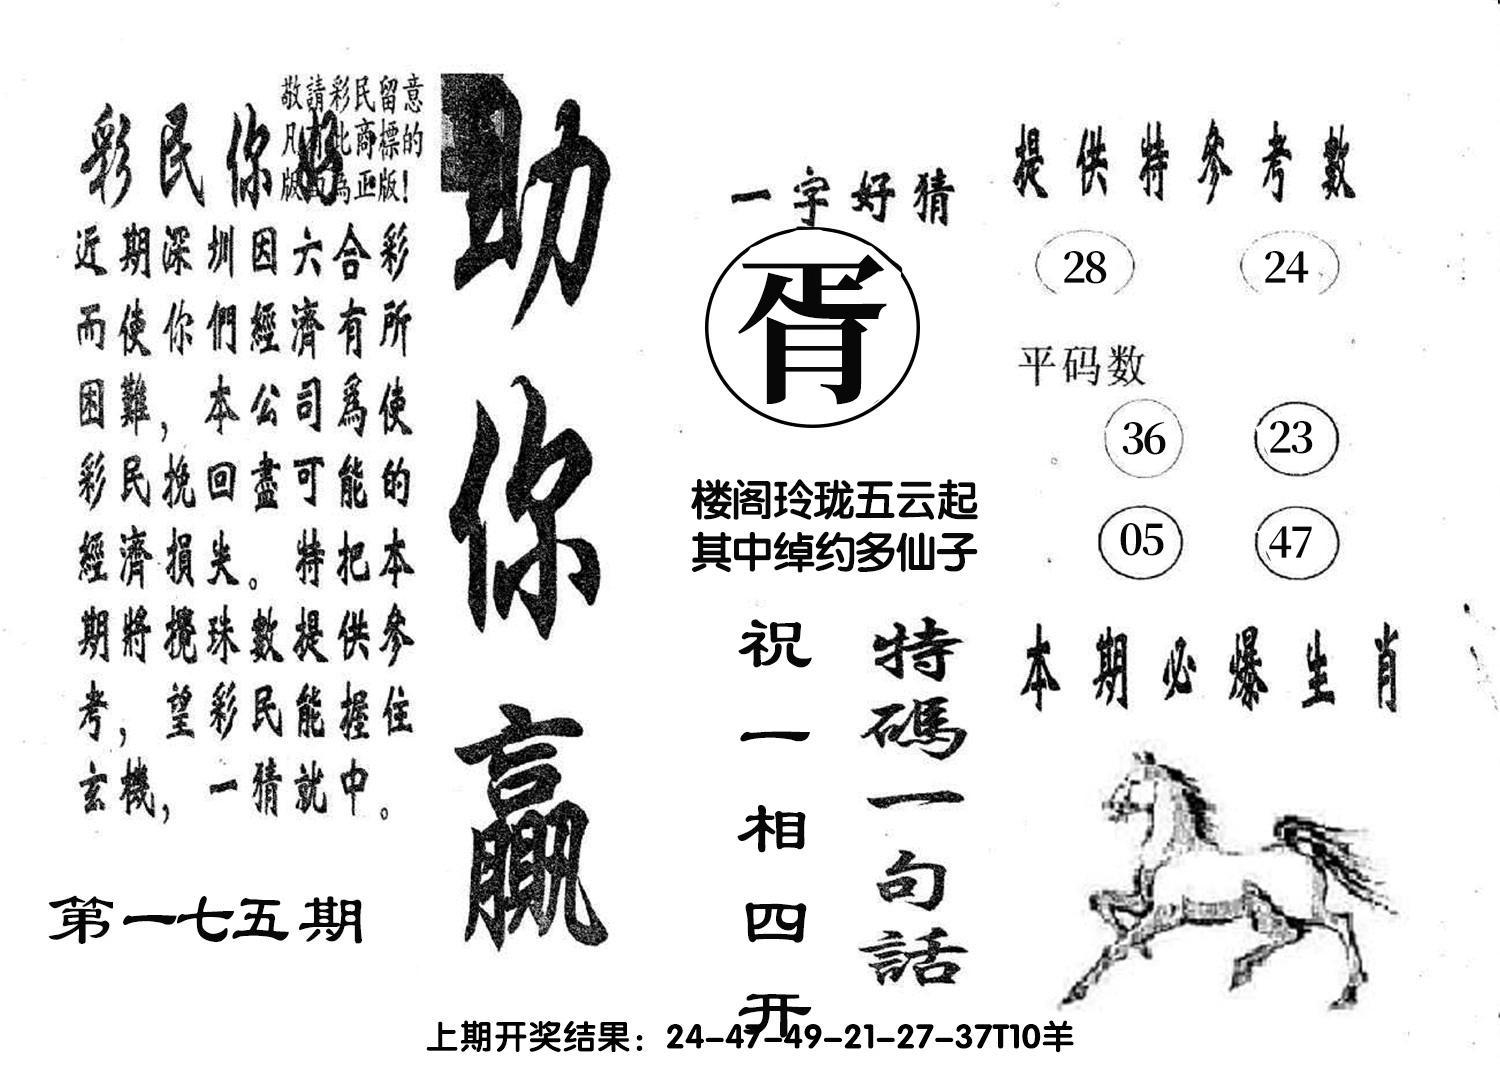 敬請彩民留意
凡有此商標的
版面為正版！
彩民你好
近期深圳因六合彩
而使你們經濟有所
困難，本公司爲使
彩民挽回盡可能的
經濟損失。特把本
期將攪珠數提供參
考，望彩民能握住
玄機，一猜就中。
第一七五期
助你贏
一字好猜
胥
楼阁玲珑五云起
其中绰约多仙子
特碼一句話
祝一相四开
提供特參考數
28 24
平码数
36 23
05 47
本期必爆生肖
上期开奖结果：24-47-49-21-27-37T10羊